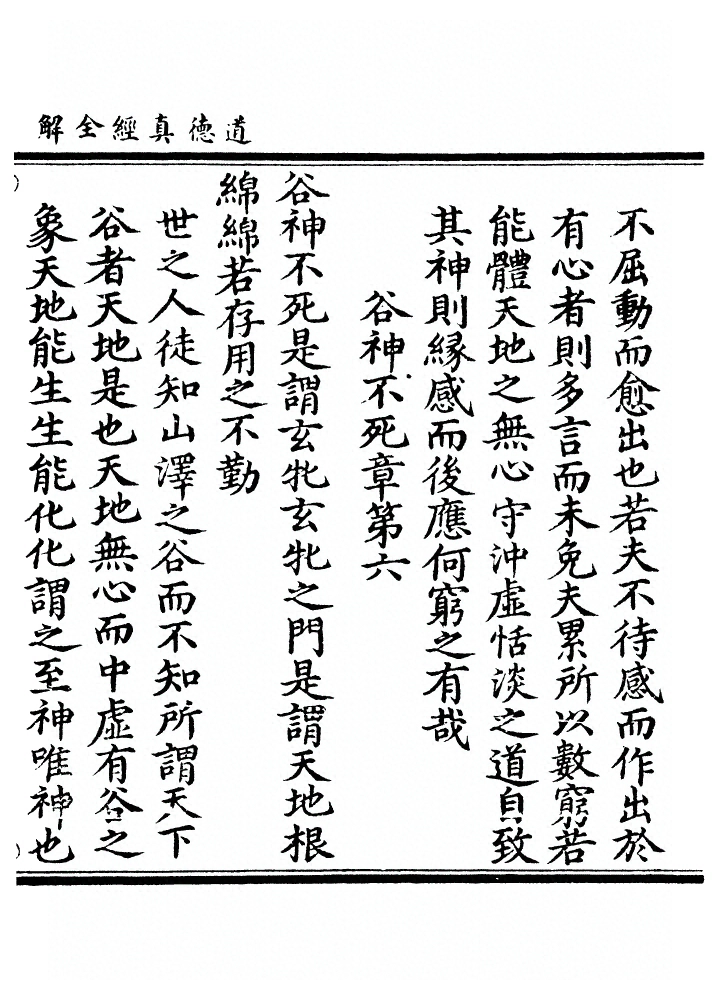 道德真經全解
不屈動而愈出也若夫不待感而作出於
有心者則多言而未免夫累所以數窮若
能體天地之無心守沖虛恬淡之道自致
其神則緣感而後應何窮之有哉
谷神不死章第六
谷神不死是謂玄牝玄牝之門是謂天地根
綿綿若存用之不勤
世之人徒知山澤之谷而不知所謂天下
谷者天地是也天地無心而中虛有谷之
象天地能生生能化化謂之至神唯神也